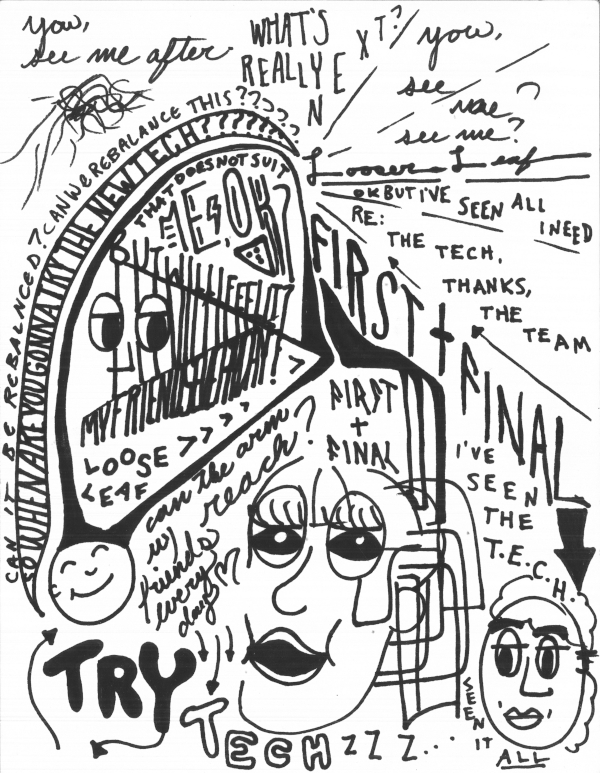 You,
see me after
WHAT'S
REALLY
NEXT?
you,
see
me
see me?
Looser Leaf
OK BUT I'VE SEEN ALL
I NEED
RE: THE TECH,
THANKS,
THE
TEAM
CAN IT BE REBALANCED? CAN WE REBALANCE THIS?????
SO WHEN ARE YOU GONNA TRY THE NEW TECH???????
THAT DOES NOT SUIT
ME, OK?
BUT WILL I FEEL IT
MY FRIEND, EVERYDAY! >
LOOSE >>>>>
LEAF
can the arm
reach?
w/
friends
every
day
FIRST
+
FINAL
FIRST
+
FINAL
I'VE
SEEN
THE
T.E.C.H.
TRY
TECH ZZZ...
SEEN
IT
ALL